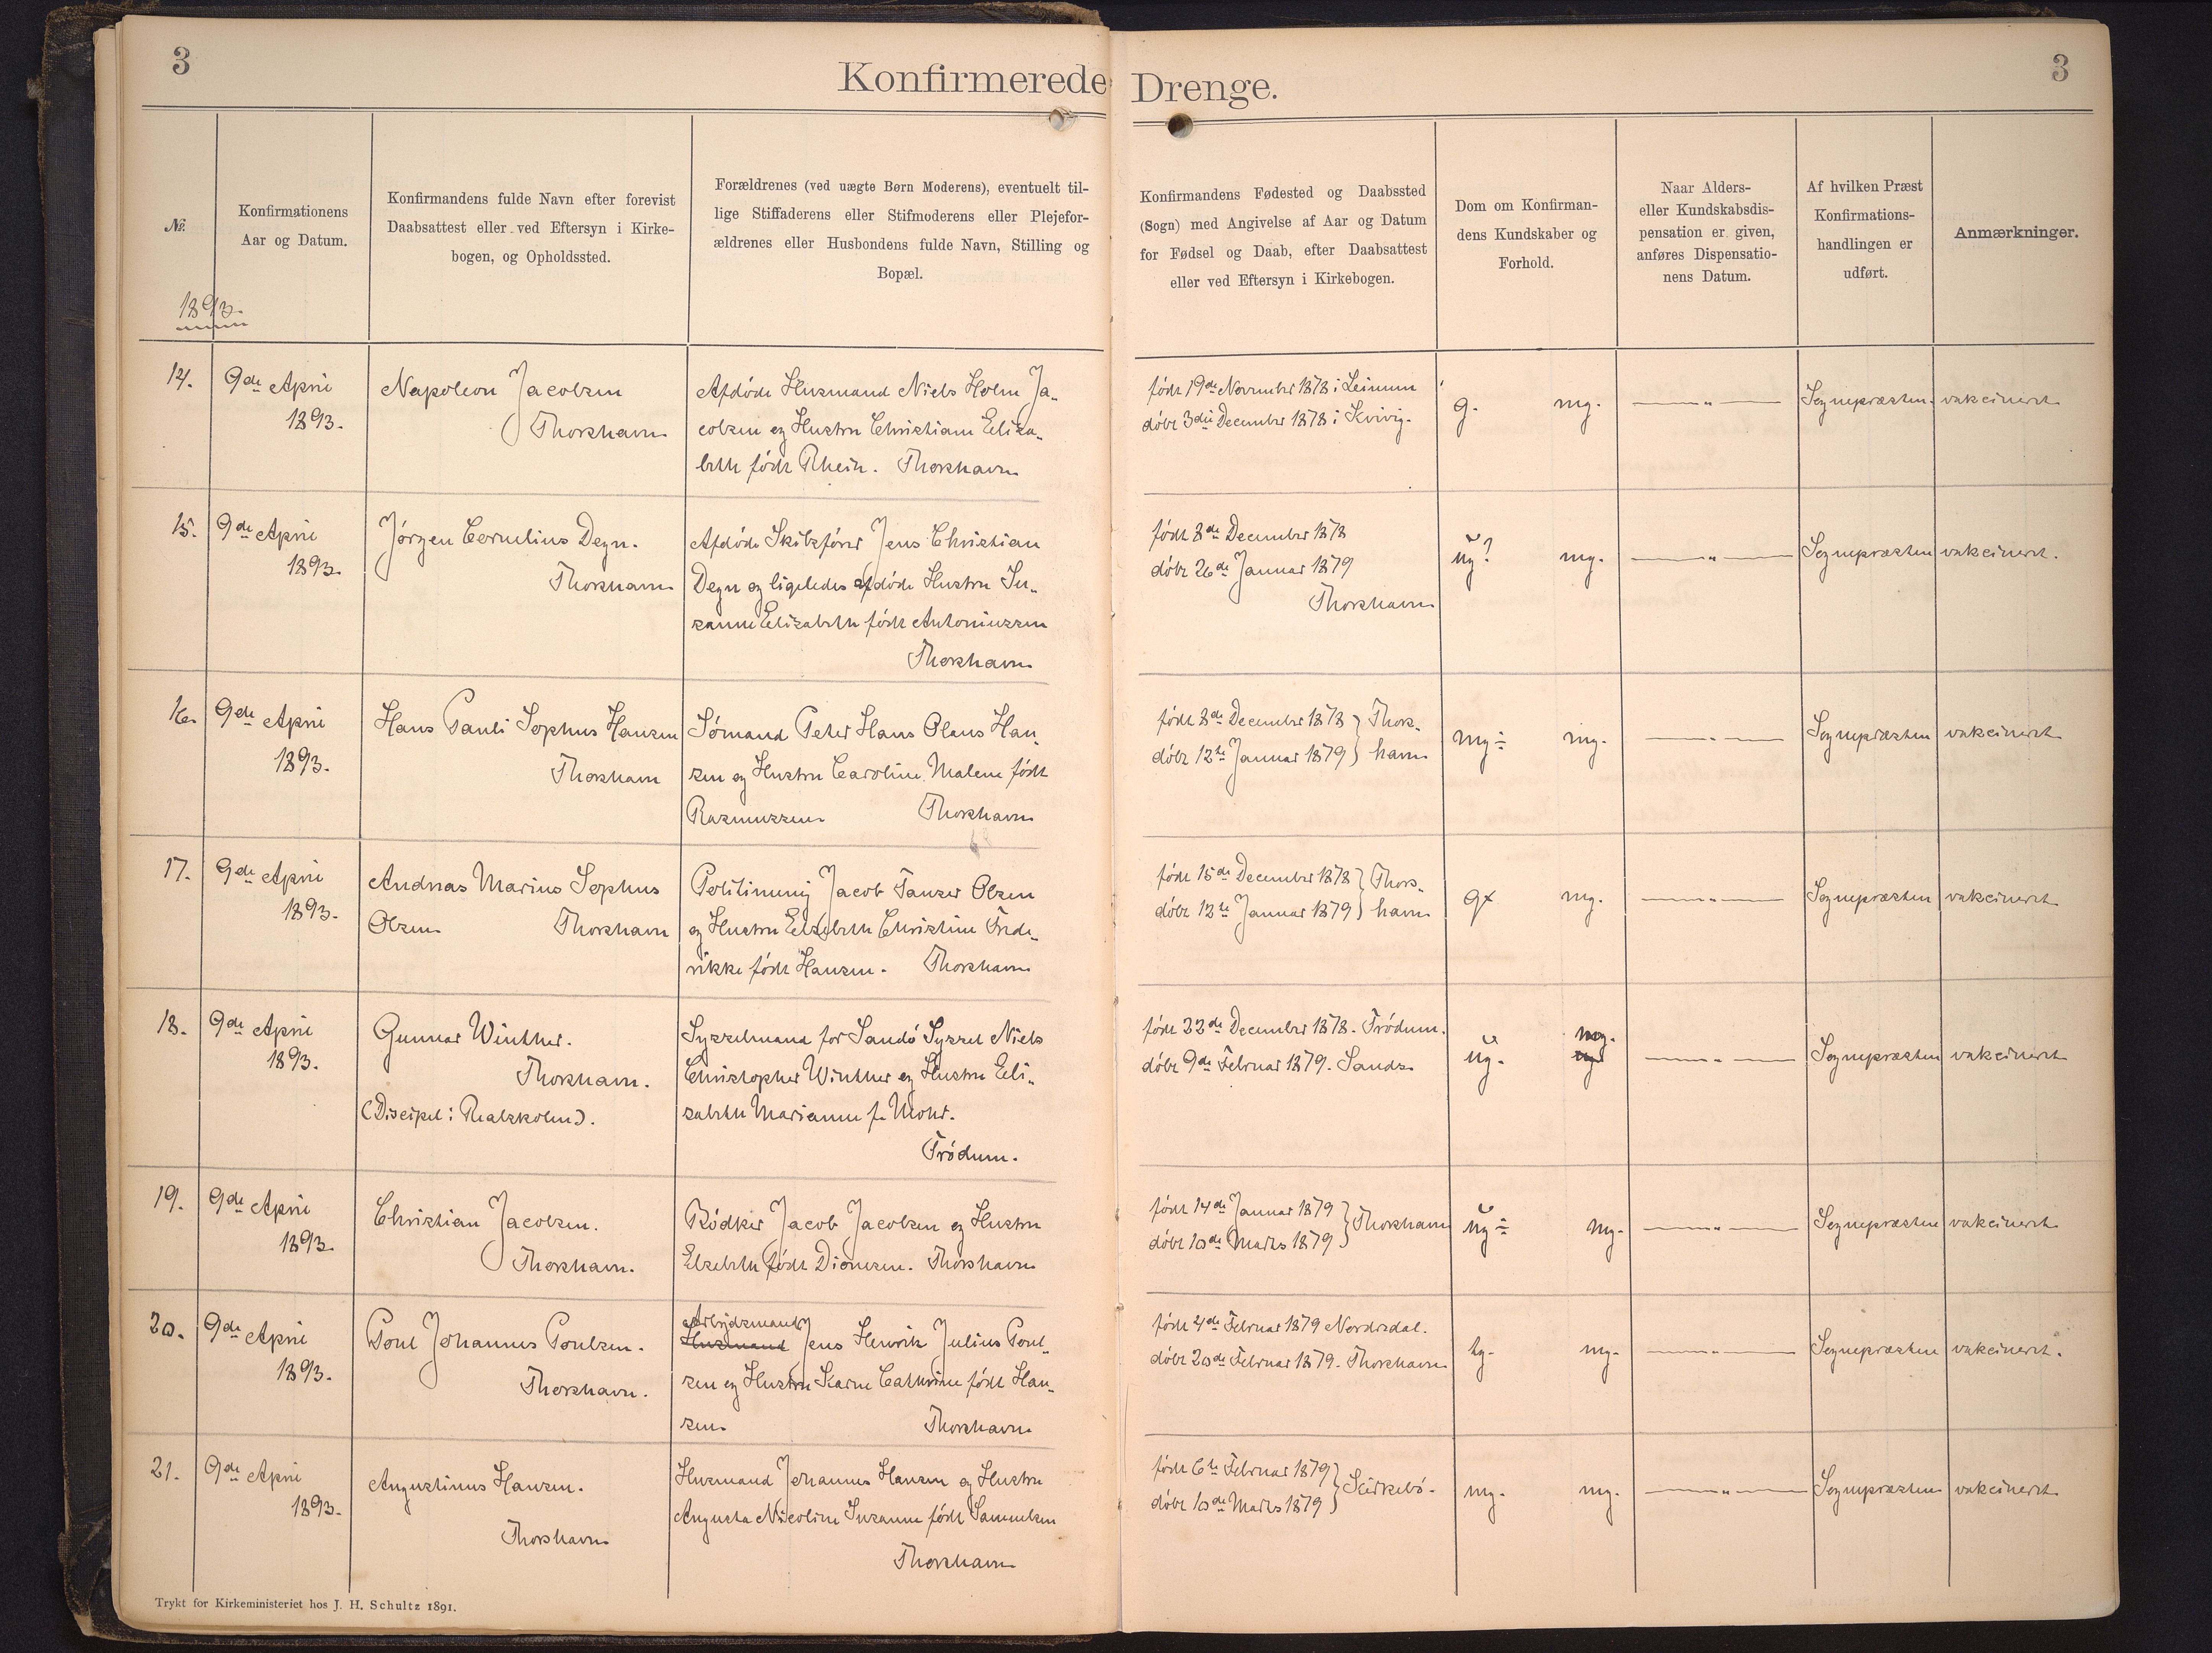 3
Konfirmerede Drenge.
3
No.
Konfirmationens
Aar og Datum.
Konfirmandens fulde Navn efter forevist
Daabsattest eller ved Eftersyn i Kirke-
bogen, og Opholdssted.
Forældrenes (ved uægte Børn Moderens), eventuelt til-
lige Stiffaderens eller Stifmoderens eller Plejefor-
ældrenes eller Husbondens fulde Navn, Stilling og
Bopæl.
Konfirmandens Fødested og Daabssted
(Sogn) med Angivelse af Aar og Datum
for Fødsel og Daab, efter Daabsattest
eller ved Eftersyn i Kirkebogen.
Dom om Konfirman-
dens Kundskaber og
Forhold.
Naar Alders-
eller Kundskabsdis-
pensation er given,
anføres Dispensatio-
nens Datum.
Af hvilken Præst
Konfirmations-
handlingen er
udført.
Anmærkninger.
1893.
14.
9de April
1893.
Napoleon Jacobsen
Thorshavn
Afdøde Husmand Niels Holm Ja-
cobsen og Hustru Christiane Eliza-
beth født Rhein. Thorshavn
født 19de November 1878 i Leinum
døbt 3die December 1878 i Kvivig.
g. mg.
—— " ——
Sognepræsten.
vakcineret
15.
9de April
1893.
Jørgen Cornelius Degn.
Thorshavn
Afdøde Skibsfører Jens Christian
Degn og ligeledes afdøde Hustru Su-
sanne Elisabeth født Antoniussen
Thorshavn
født 8de December 1878
døbt 26de Januar 1879
Thorshavn
ug? mg.
—— " ——
Sognepræsten
vakcineret.
16.
9de April
1893.
Hans Pauli Sophus Hansen
Thorshavn
Sømand Peter Hans Olaus Han-
sen og Hustru Caroline Malene født
Rasmussen Thorshavn
født 8de December 1878 } Thors-
døbt 12te Januar 1879 } havn
mg÷ mg.
—— " ——
Sognepræsten
vakcineret
17.
9de April
1893.
Andreas Marius Sophus
Olsen Thorshavn
Politibetjent Jacob Tauser Olsen
og Hustru Elsebeth Christine Frede-
rikke født Hansen. Thorshavn
født 15de December 1878 } Thors-
døbt 12te Januar 1879 } havn
g× mg.
—— " ——
Sognepræsten
vakcineret
18.
9de April
1893.
Gunnar Winther.
Thorshavn.
(Discipel i Realskolen).
Sysselmand for Sandø Syssel Niels
Christopher Winther og Hustru Eli-
sabeth Marianne f. Mohr.
Trødum.
født 22de December 1878. Trødum.
døbt 9de Februar 1879. Sands
ug. mg.
—— " ——
Sognepræsten
vakcineret
19.
9de April
1893.
Christian Jacobsen.
Thorshavn.
Rødker Jacob Jacobsen og Hustru
Elsebeth født Dionesen. Thorshavn
født 14de Januar 1879 } Thorshavn
døbt 10de Marts 1879 }
ug÷ mg.
—— " ——
Sognepræsten
vakcineret
20.
9de April
1893.
Poul Johannes Poulsen.
Thorshavn.
Arbejdsmand
Husmand Jens Henrik Julius Poul-
sen og Hustru Karen Cathrine født Han-
sen Thorshavn
født 4de Februar 1879 Nordredal.
døbt 20de Februar 1879. Thorshavn
tg. mg.
—— " ——
Sognepræsten
vakcineret.
21.
9de April
1893.
Augustinus Hansen.
Thorshavn
Husmand Johannes Hansen og Hustru
Augusta Nicoline Susanne født Samuelsen
Thorshavn
født 6te Februar 1879 } Kirkebø.
døbt 10de Marts 1879 }
mg. mg.
—— " ——
Sognepræsten
vakcineret
Trykt for Kirkeministeriet hos J. H. Schultz 1891.